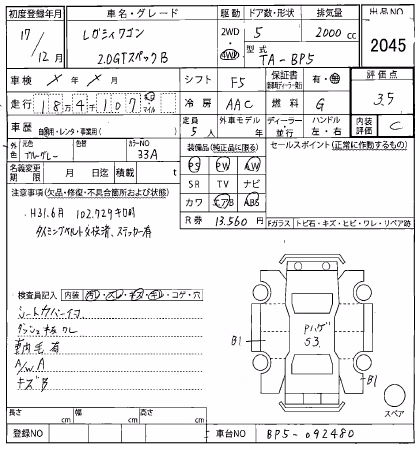 初度登録年月 車名・グレード 駆動 ドア数・形状 排気量 出品NO
17 レガシィワゴン 2WD 5 2000 cc 2045
12月 2.0GTスペックB 4WD 型式 TA-BP5
車検 シフト F5 保証書 有・無 評価点
走行 マイル 冷房 AAC 燃料 G 3.5
車歴 自家用・レンタ・事業用( ) 定員 5人 外車モデル 年 ディーラー・並行 ハンドル 左・右 内装評価 C
外色 元色 ブルーグレー 色替 カラーNO 33A 装備品(純正品に限る) セールスポイント(正常に作動するもの)
名義変更期限 月 日迄 積載 t PS PW AW
注意事項(欠品・修復・不具合箇所および状態) SR TV ナビ
H31.6月 102.729キロ時 カワ エアB ABS
タイミングベルト交換済、ステッカー有 R券 13.560円 Fガラス トビ石・キズ・ヒビ・ワレ・リペア跡
検査員記入 内装 汚レ・スレ・キズ・キレ・コゲ・穴
シートカバーイコ
ダッシュ板ワレ
車内毛有
A/W A
キズB
B1
53.
B1
スペア
長さ cm 幅 cm 高さ cm
登録NO 車台NO BP5-092480